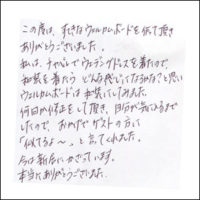 この度は、すてきなウェルカムボードを作って頂き
ありがとうございました。
私は、チャペルでウェディングドレスを着たので、
和装を着たら どんな感じになるかな？と思い
ウェルカムボードは和装にしてみました。
何回か修正をして頂き、自分が気に入るまで
したので、おかげでゲストの方に
「似てるよ〜。」と言ってくれました。
今は新居にかざっています。
本当にありがとうございました。